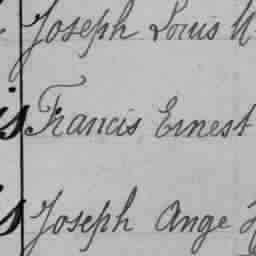 Joseph Louis
Francis Ernest
Joseph Ange